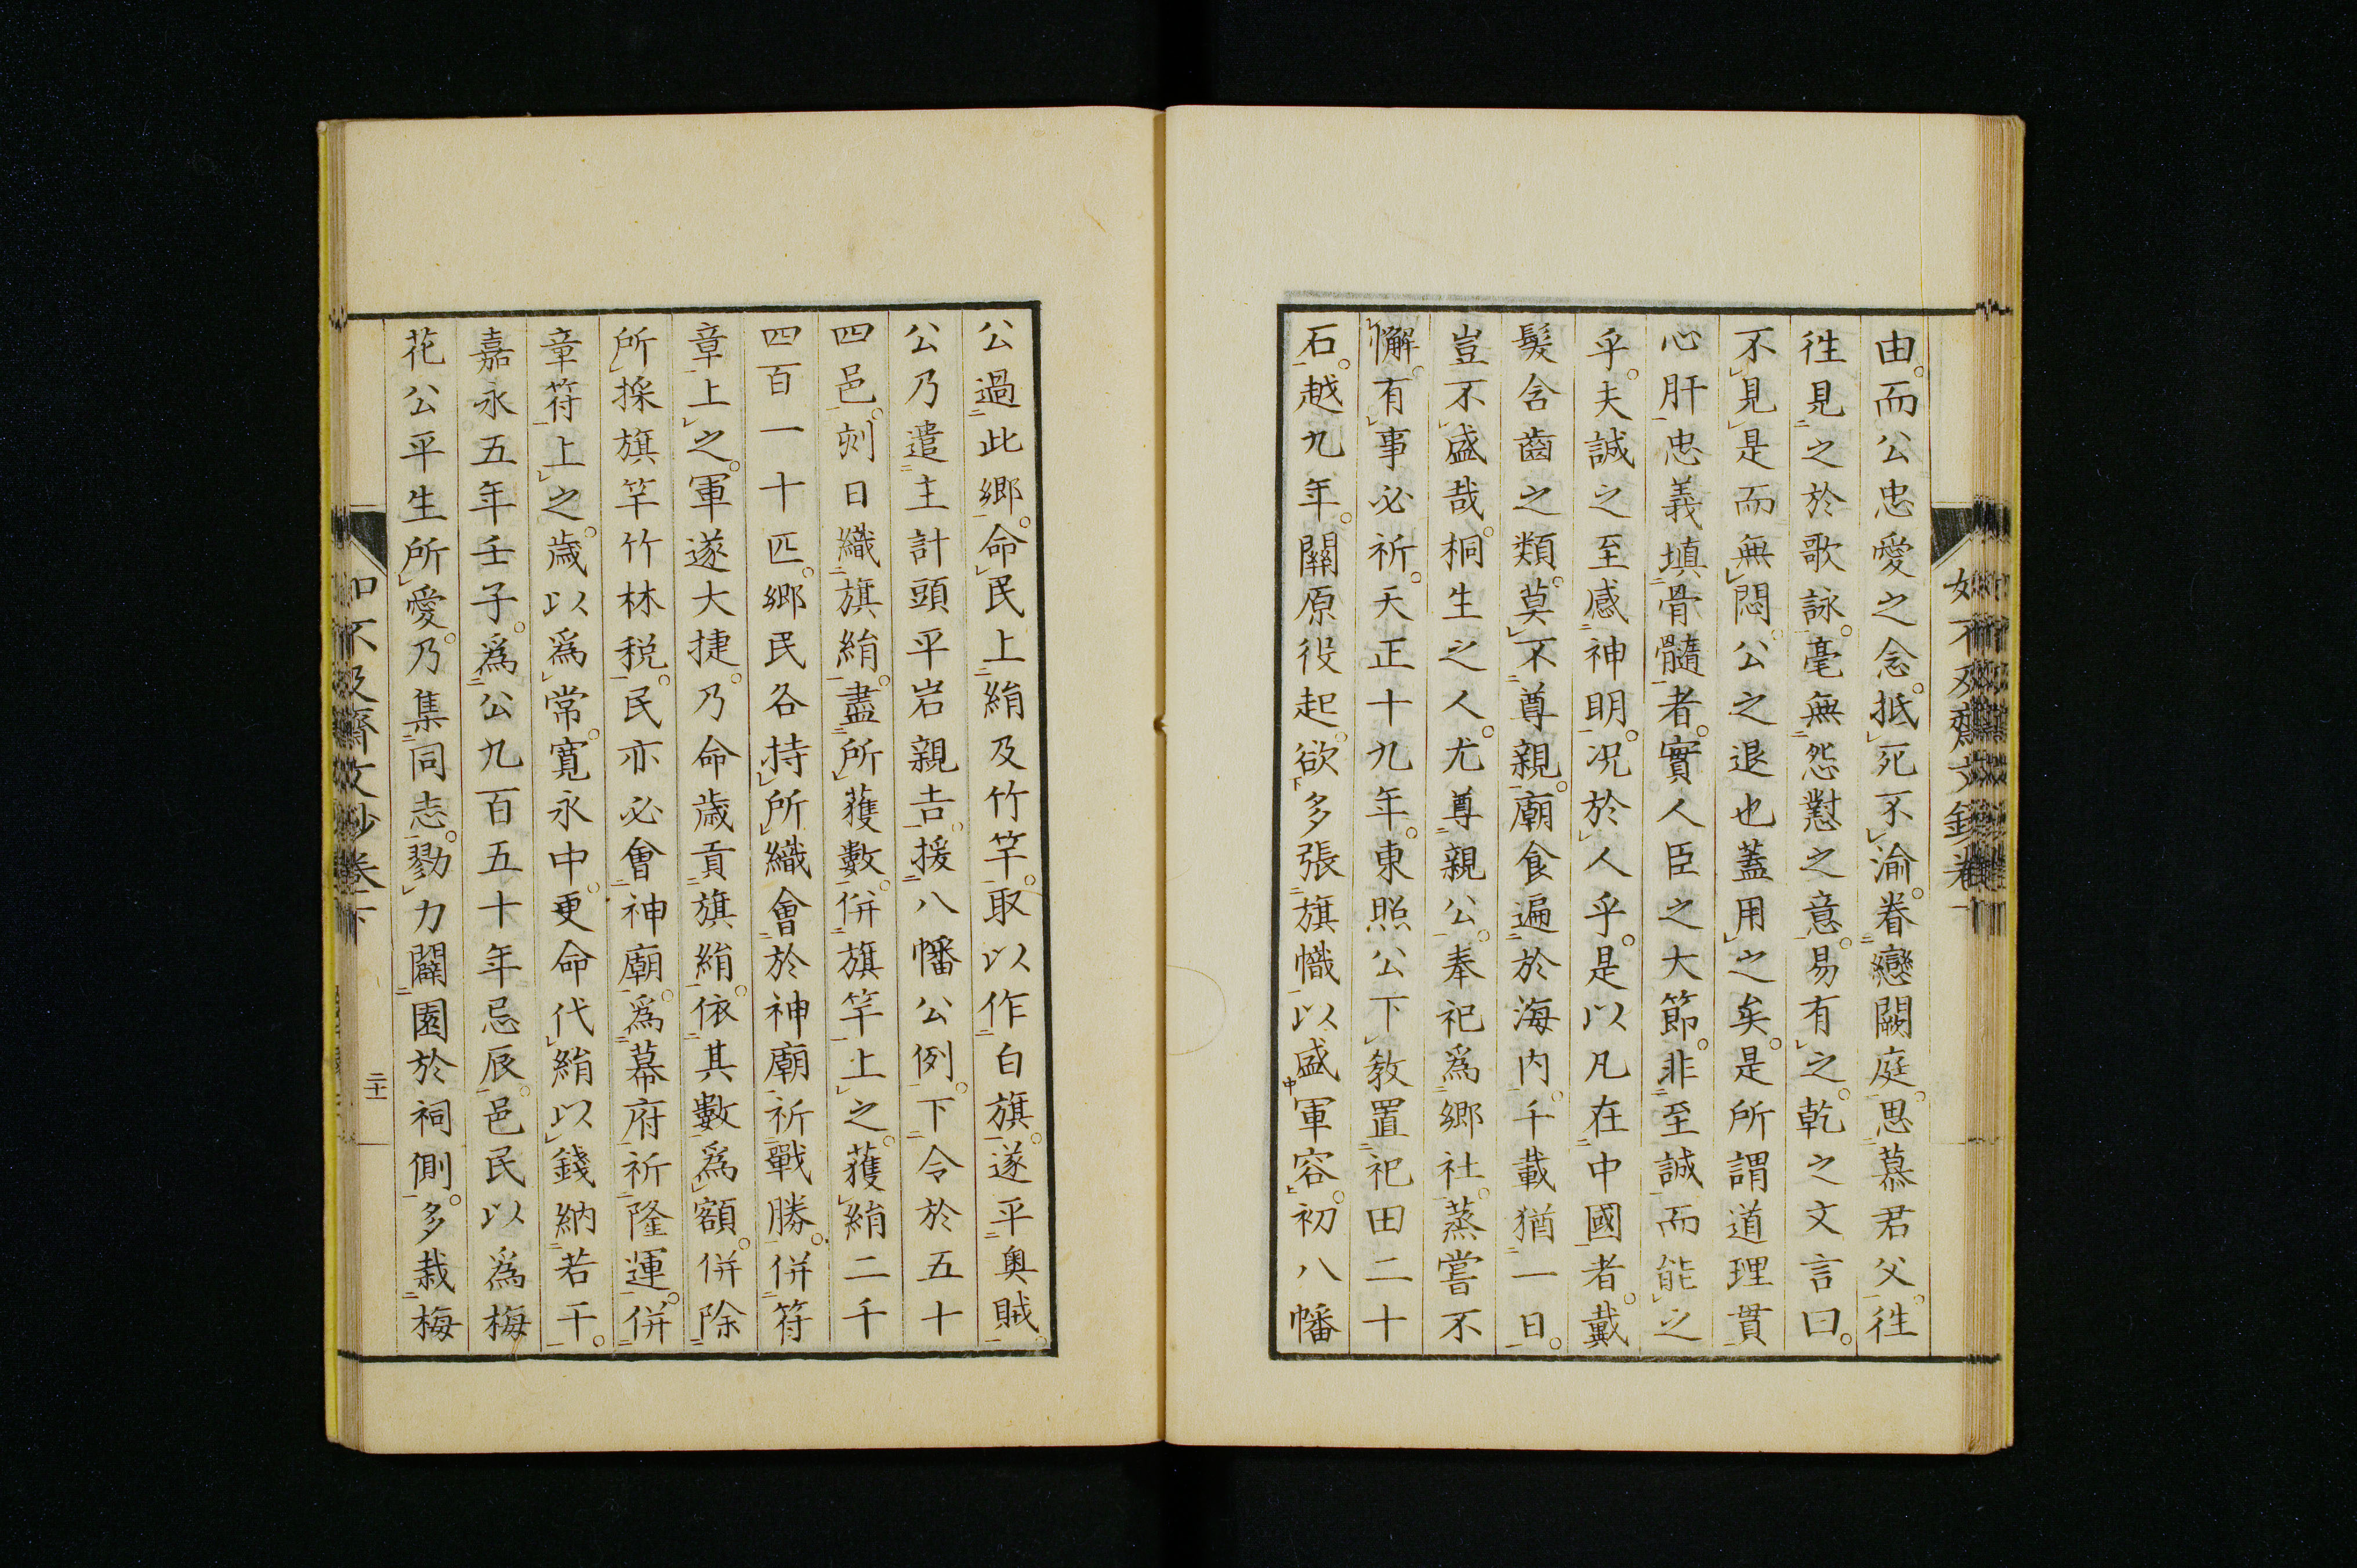 由。而公忠愛之念。抵死不渝。眷戀闕庭。思慕君父。徃
徃見之於歌詠。毫無怨懟之意。易有之。乾之文言曰。
不見是而無悶。公之退也蓋用之矣。是所謂道理貫
心肝忠義填骨髓者。實人臣之大節。非至誠而能之
乎。夫誠之至感神明。況於人乎。是以凡在中國者。戴
髮含齒之類。莫不尊親。廟食遍於海内。千載猶一日。
豈不盛哉。桐生之人。尤尊親公。奉祀爲鄉社。蒸嘗不
懈。有事必祈。天正十九年。東照公下教置祀田二十
石。越九年。關原役起。欲多張旗幟以盛軍容。初八幡
公過此鄉。命民上絹及竹竿。取以作白旗。遂平奥賊。
公乃遣主計頭平岩親吉。援八幡公例。下令於五十
四邑。刻日織旗絹。盡所獲數。併旗竿上之。獲絹二千
四百一十匹。鄉民各持所織會於神廟祈戰勝。併符
章上之。軍遂大捷。乃命歲貢旗絹。依其數爲額。併除
所採旗竿竹林税。民亦必會神廟。爲幕府祈隆運。併
章符上之。歲以爲常。寛永中。更命代絹以錢納若干。
嘉永五年壬子。爲公九百五十年忌辰。邑民以爲梅
花公平生所愛。乃集同志。勠力闢園於祠側。多栽梅
如不及齋文鈔卷下
二十一